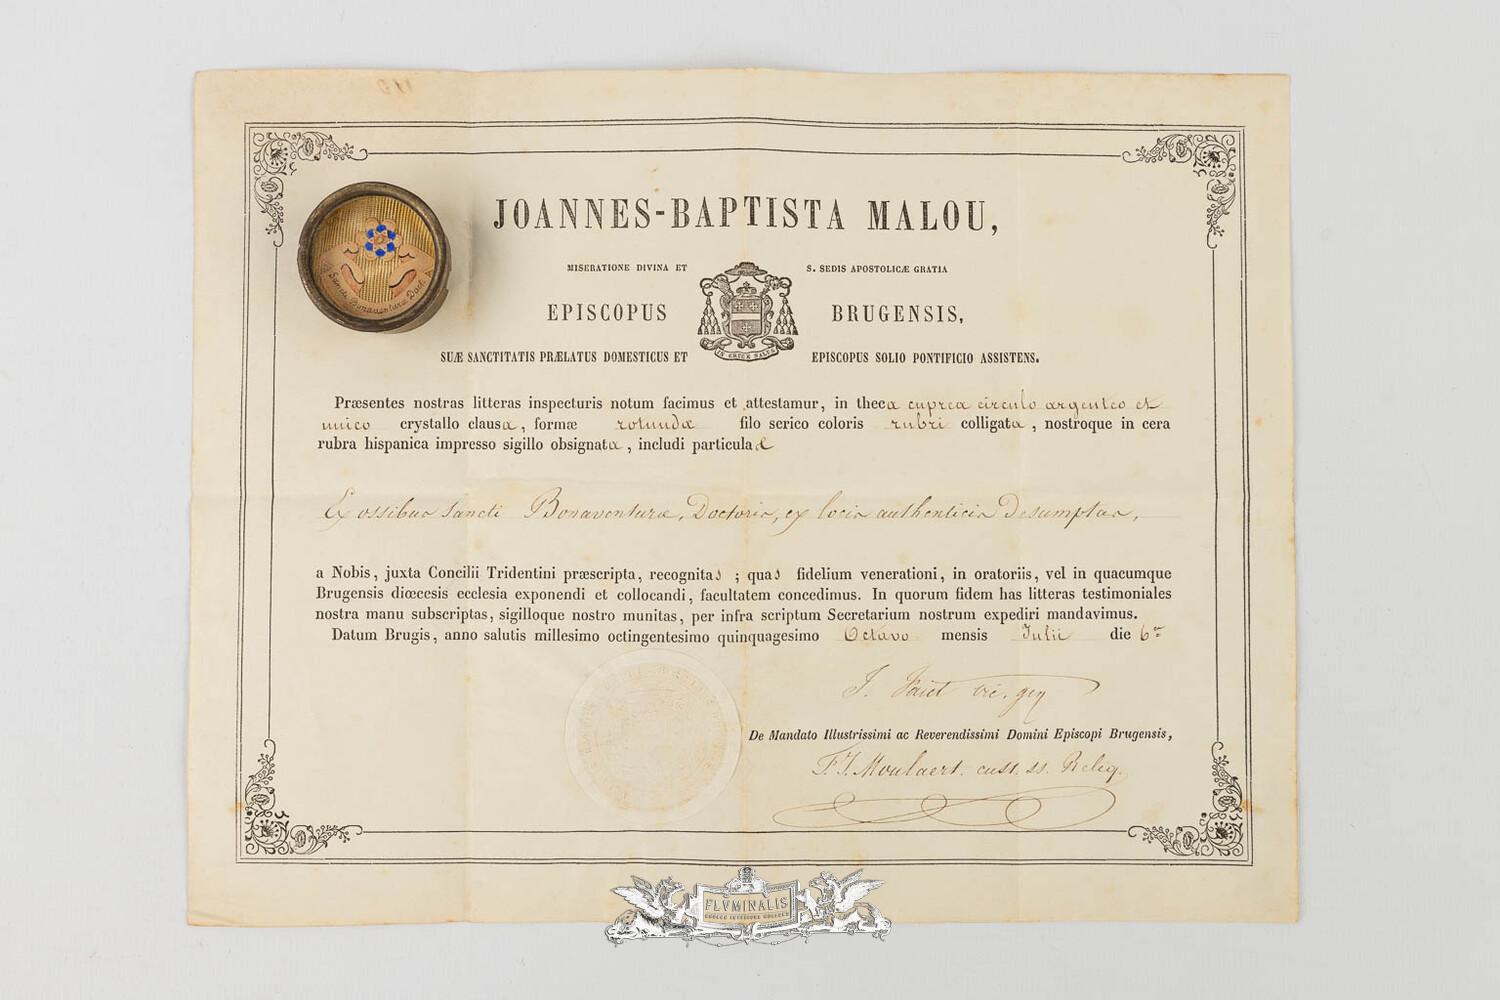 JOANNES-BAPTISTA MALOU,
MISERATIONE DIVINA ET S. SEDIS APOSTOLICÆ GRATIA
EPISCOPUS BRUGENSIS,
IN CRUCE SALUS
SUÆ SANCTITATIS PRÆLATUS DOMESTICUS ET EPISCOPUS SOLIO PONTIFICIO ASSISTENS.
Sancti Bonaventura Doct.
Præsentes nostras litteras inspecturis notum facimus et attestamur, in theca cuprea circulo argenteo et
unico crystallo clausa, formæ rotundæ filo serico coloris rubri colligata, nostroque in cera
rubra hispanica impresso sigillo obsignata, includi particulas
Ex ossibus Sancti Bonaventuræ, Doctoris, ex locis authenticis desumptas,
a Nobis, juxta Concilii Tridentini præscripta, recognitas ; quas fidelium venerationi, in oratoriis, vel in quacumque
Brugensis diœcesis ecclesia exponendi et collocandi, facultatem concedimus. In quorum fidem has litteras testimoniales
nostra manu subscriptas, sigilloque nostro munitas, per infra scriptum Secretarium nostrum expediri mandavimus.
Datum Brugis, anno salutis millesimo octingentesimo quinquagesimo Octavo mensis Julii die 6ta
J. Faict vic. gen
De Mandato Illustrissimi ac Reverendissimi Domini Episcopi Brugensis,
F.J. Moulaert. cust. ss. Reliq.
FLVMINALIS